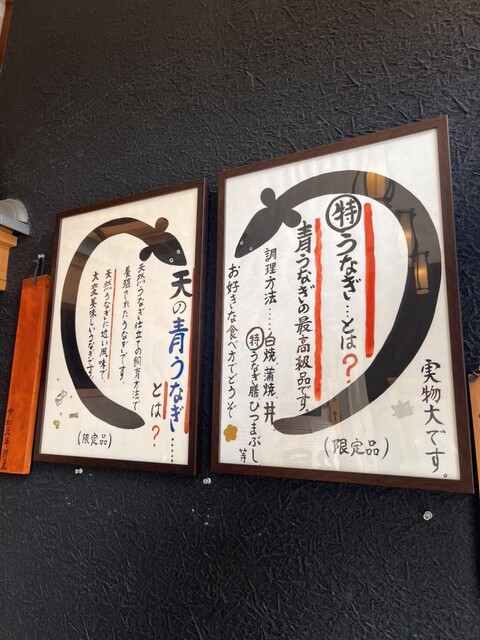 特うなぎ…とは?
青うなぎの最高級品です。
調理方法……白焼 蒲焼 丼
特うなぎ膳 ひつまぶし等
お好きな食べ方でどうぞ
(限定品)
実物大です。
天の青うなぎ……
とは?
天然うなぎ仕立ての飼育方法で
養殖されたうなぎです。
天然うなぎに近い風味で
大変美味しいうなぎです。
(限定品)